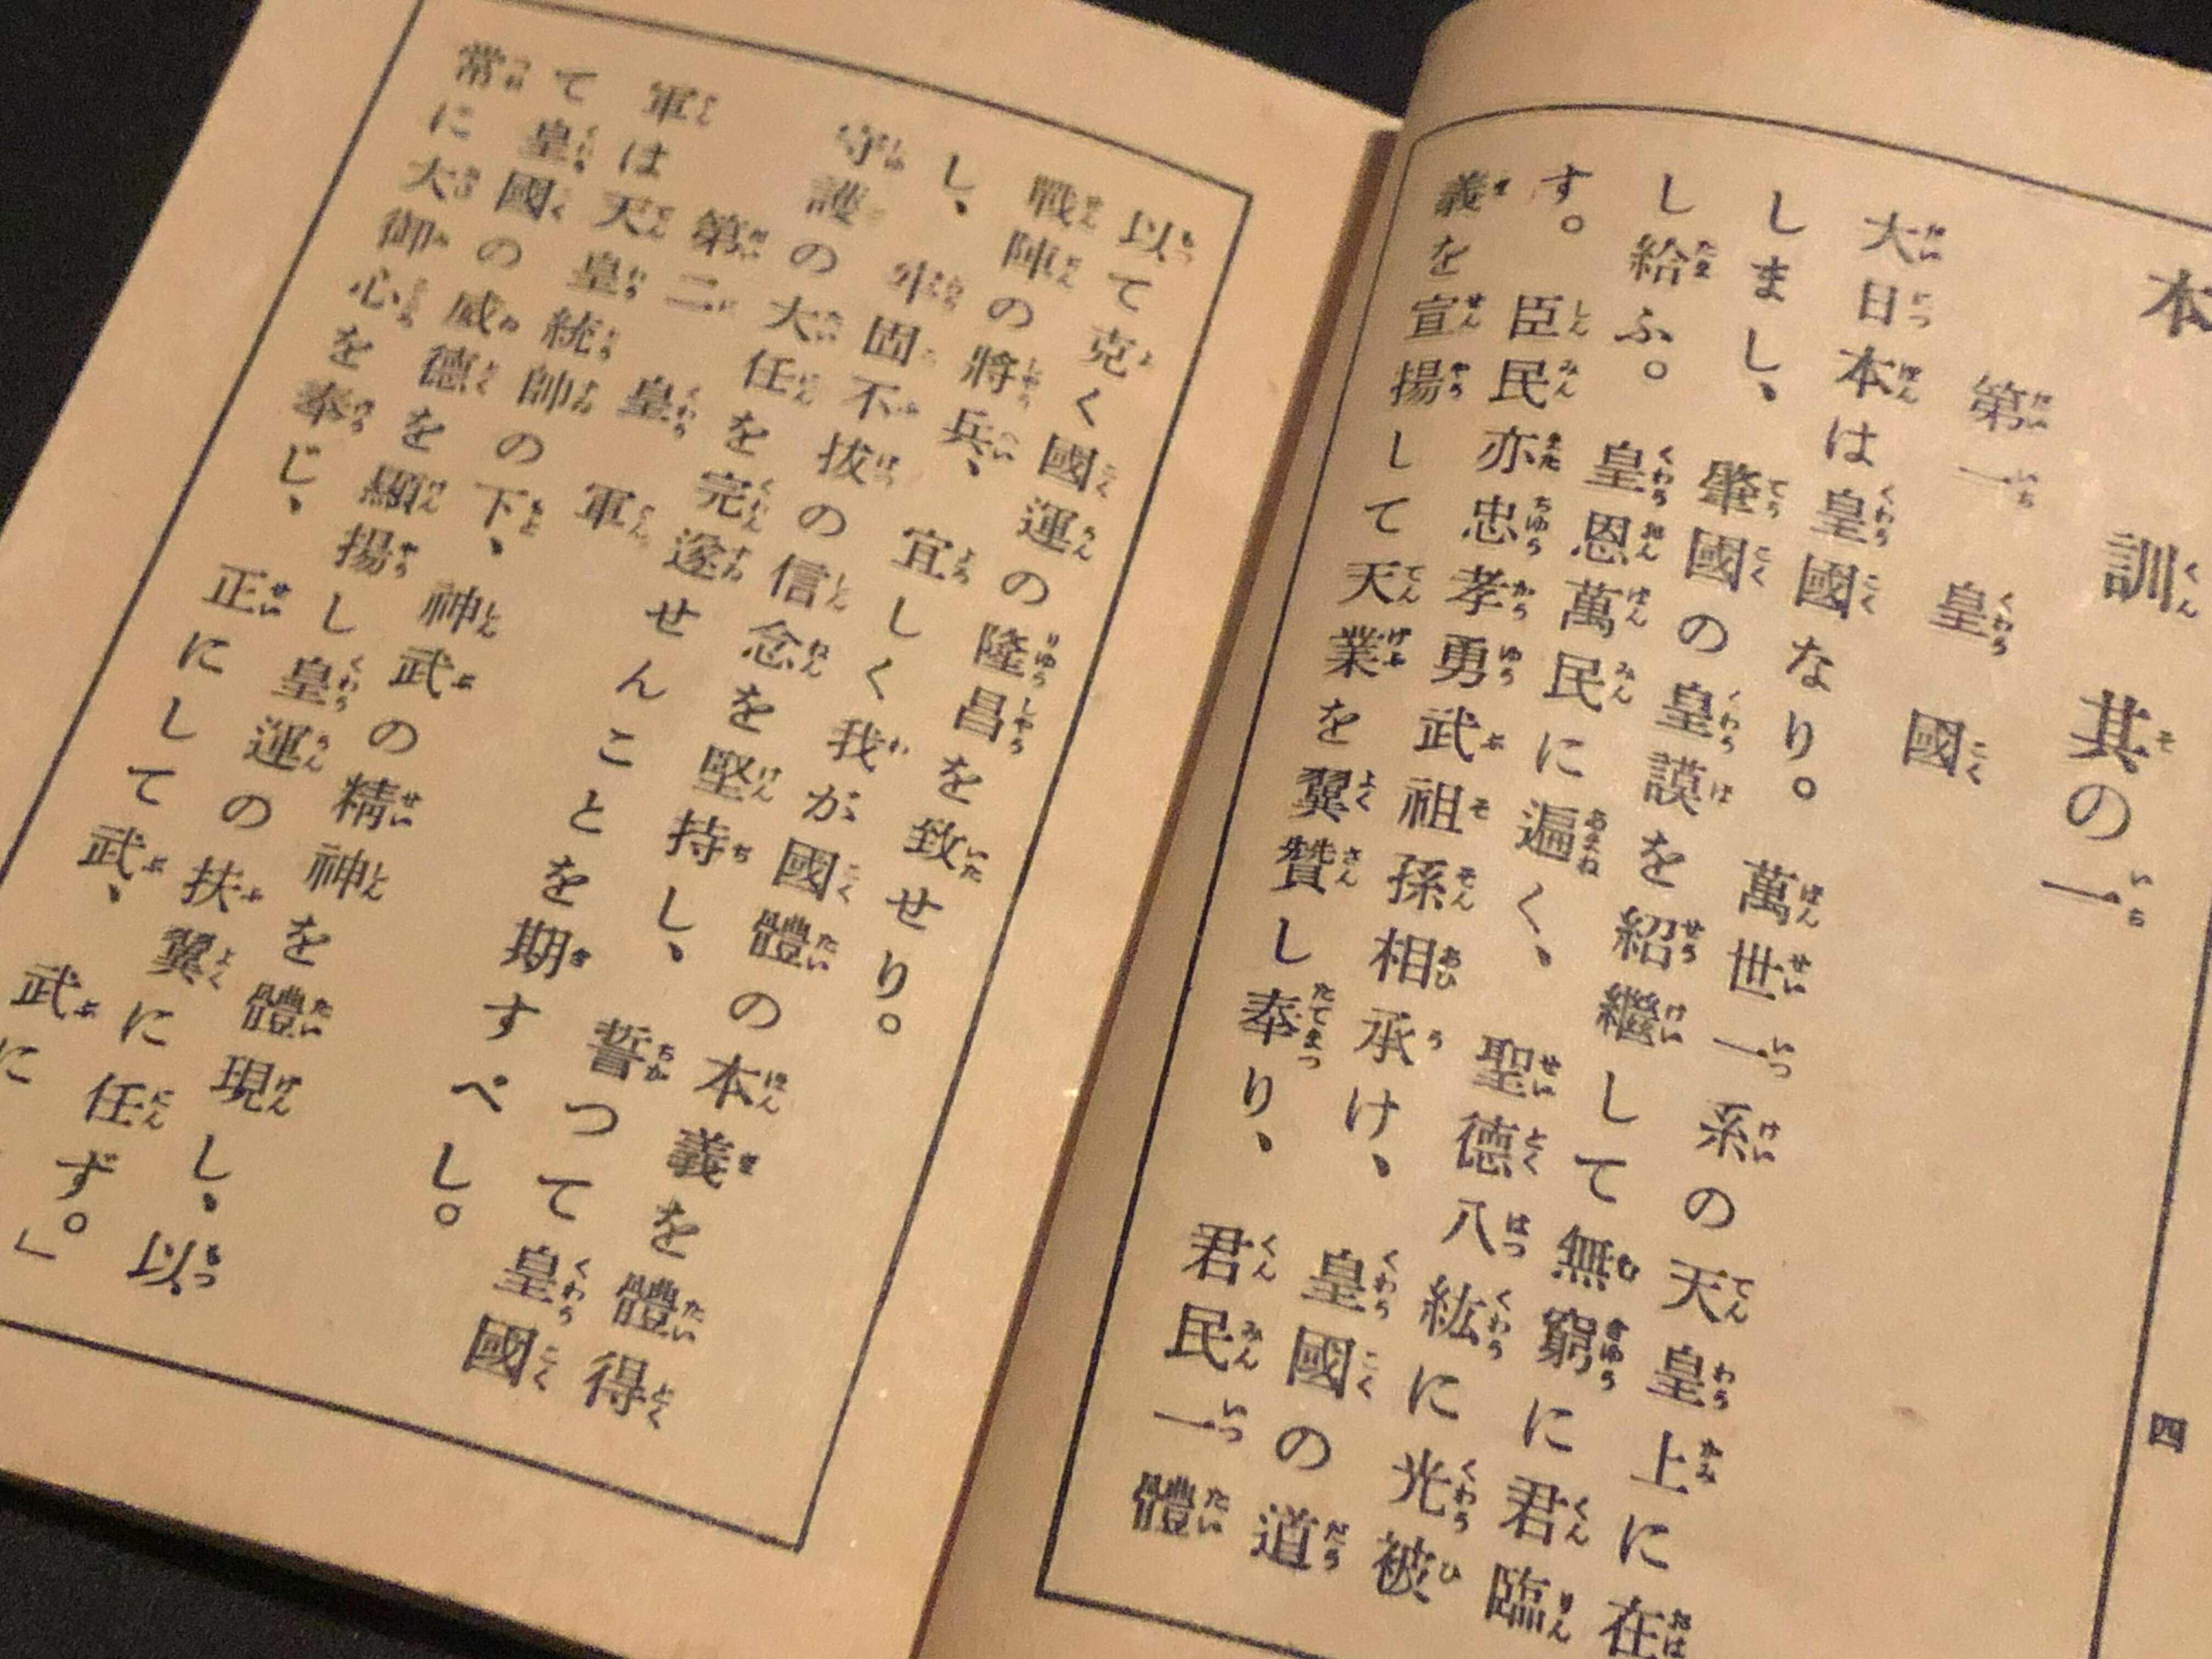 本訓其の一
第一　皇國
大日本は皇國なり。萬世一系の天皇上に在
しまし、肇國の皇謨を紹繼して無窮に君臨
し給ふ。皇恩萬民に遍く、聖德八紘に光被
す。臣民亦忠孝勇武祖孫相承け、皇國の道
義を宣揚して天業を翼贊し奉り、君民一體
四
以て克く國運の隆昌を致せり。
戰陣の將兵、宜しく我が國體の本義を體得
し、牢固不拔の信念を堅持し、誓つて皇國
守護の大任を完遂せんことを期すべし。
第二　皇軍
軍は天皇統帥の下、神武の精神を體現し、以
て皇國の威德を顯揚し皇運の扶翼に任ず。」
常に大御心を奉じ、正にして武、武に